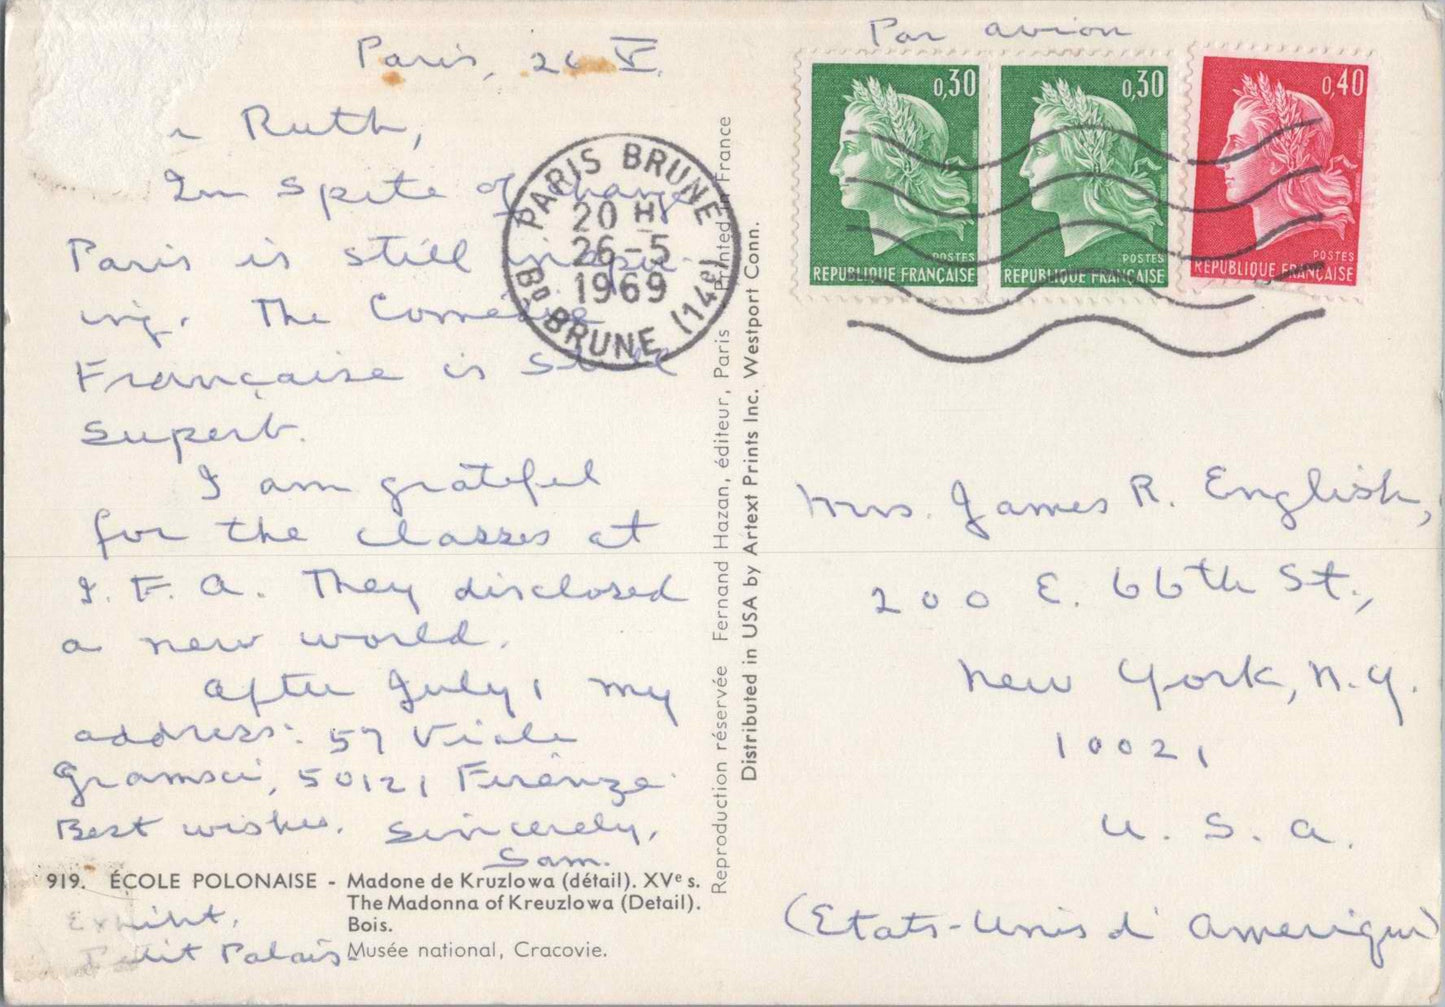 Paris, 26 V.
Ruth,
In spite of change
Paris is still inspir-
ing. The Comédie
Française is still
superb.
I am grateful
for the classes at
I. F. A. They disclosed
a new world.
After July 1 my
address: 57 Viale
Gramsci, 50121 Firenze.
Best wishes. Sincerely,
Sam.
919. ÉCOLE POLONAISE - Madone de Kruzlowa (détail). XVe s.
The Madonna of Kreuzlowa (Detail).
Bois.
Musée national, Cracovie.
Exhibit,
Petit Palais
PARIS BRUNE
20 H
26-5
1969
Bd BRUNE (14e)
Reproduction réservée Fernand Hazan, éditeur, Paris Printed in France
Distributed in USA by Artext Prints Inc. Westport Conn.
Par avion
0,30
POSTES
REPUBLIQUE FRANÇAISE
0,30
POSTES
REPUBLIQUE FRANÇAISE
0,40
POSTES
REPUBLIQUE FRANÇAISE
Mrs. James R. English,
200 E. 66th St.,
New York, N.Y.
10021
U. S. A.
(Etats-Unis d'Amerique)